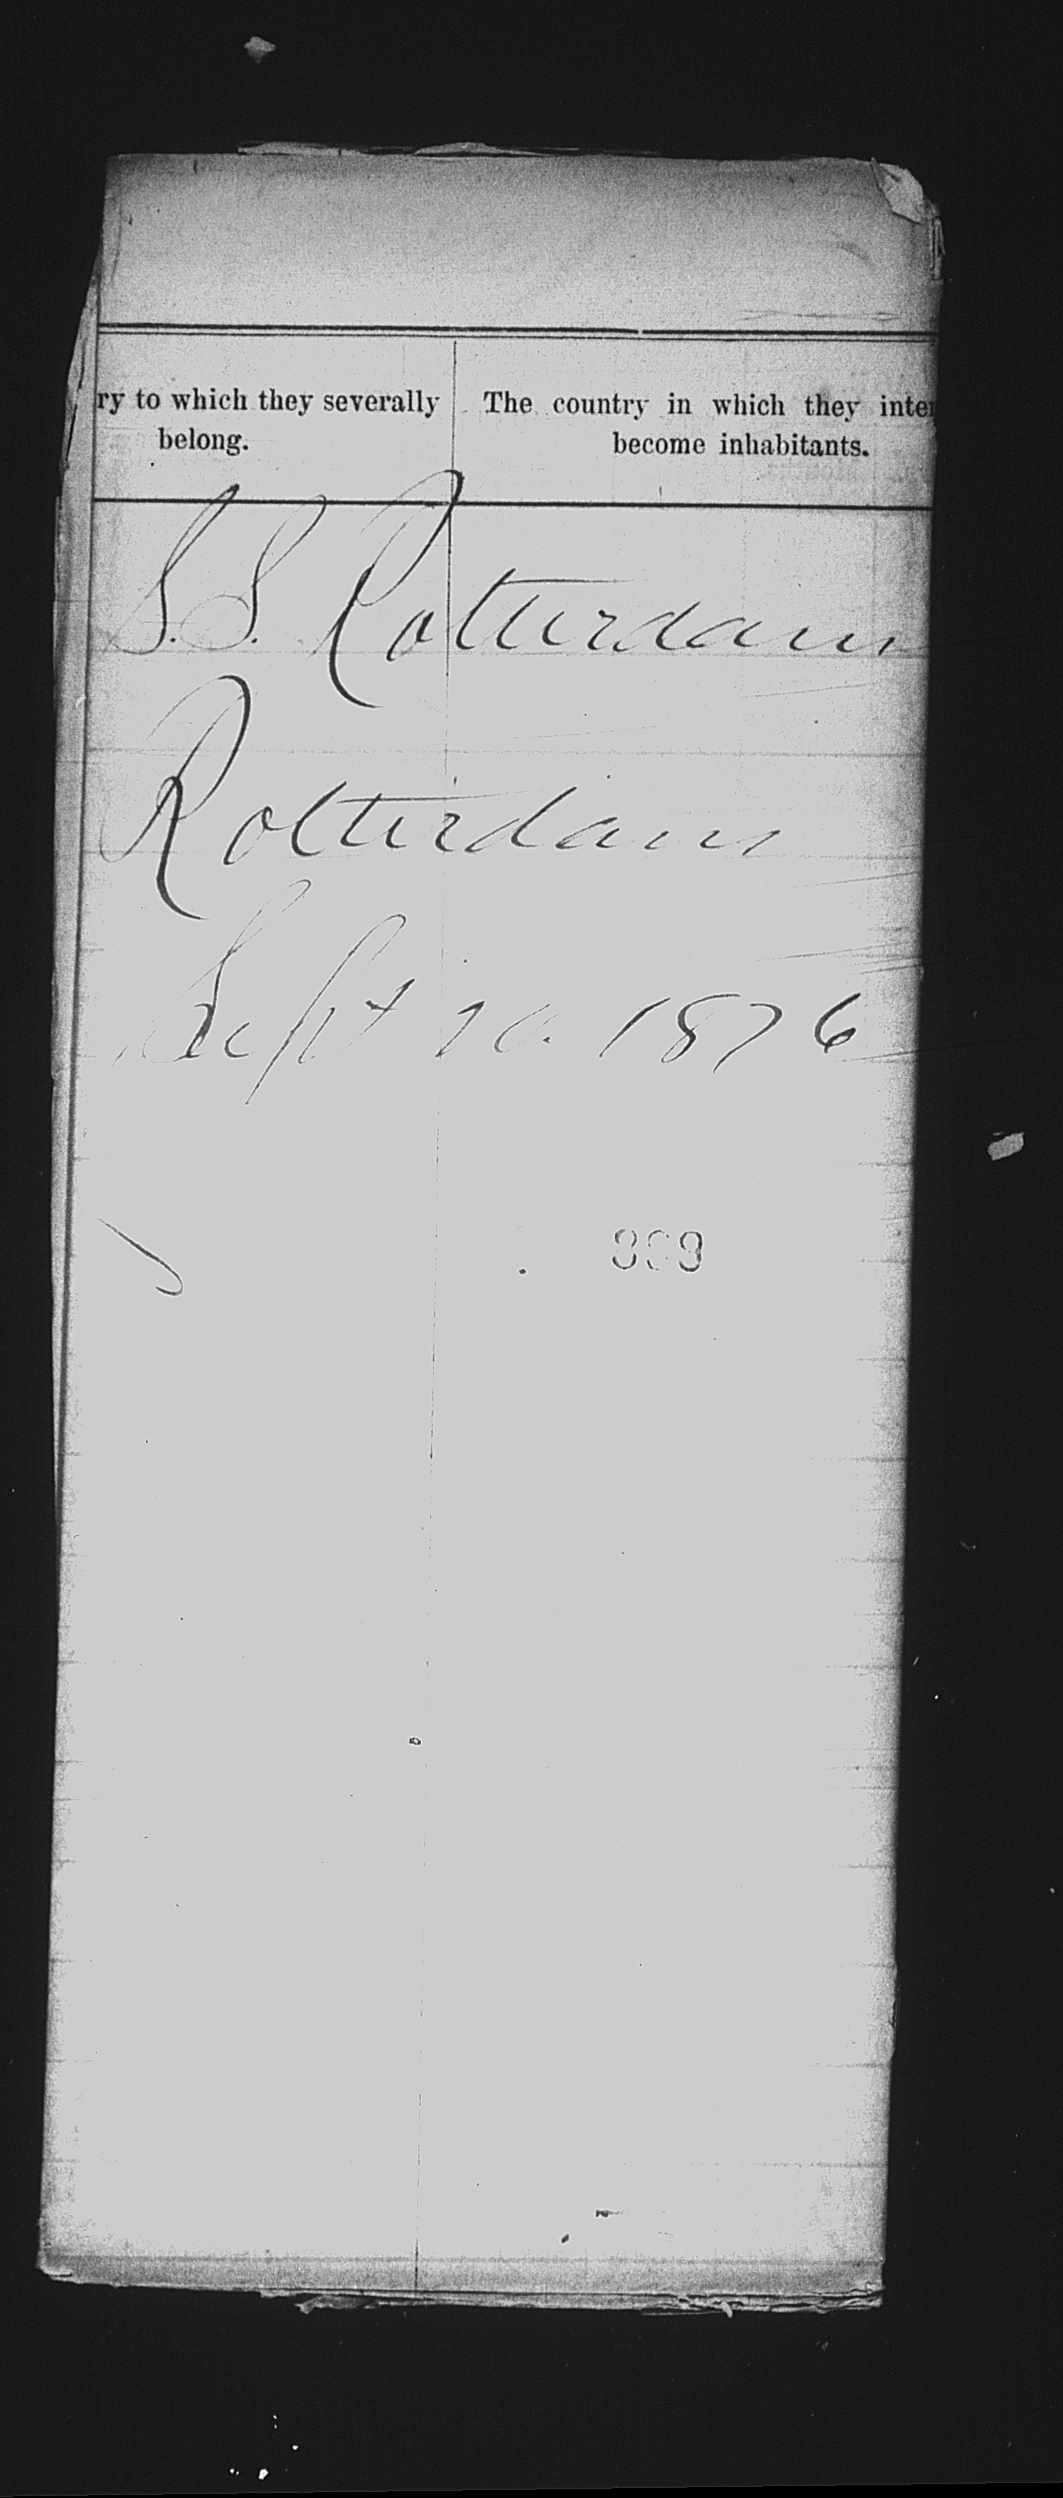 ry to which they severally
belong.
The country in which they inte
become inhabitants.
S.S. Rotterdam
Rotterdam
Sept 20. 1876